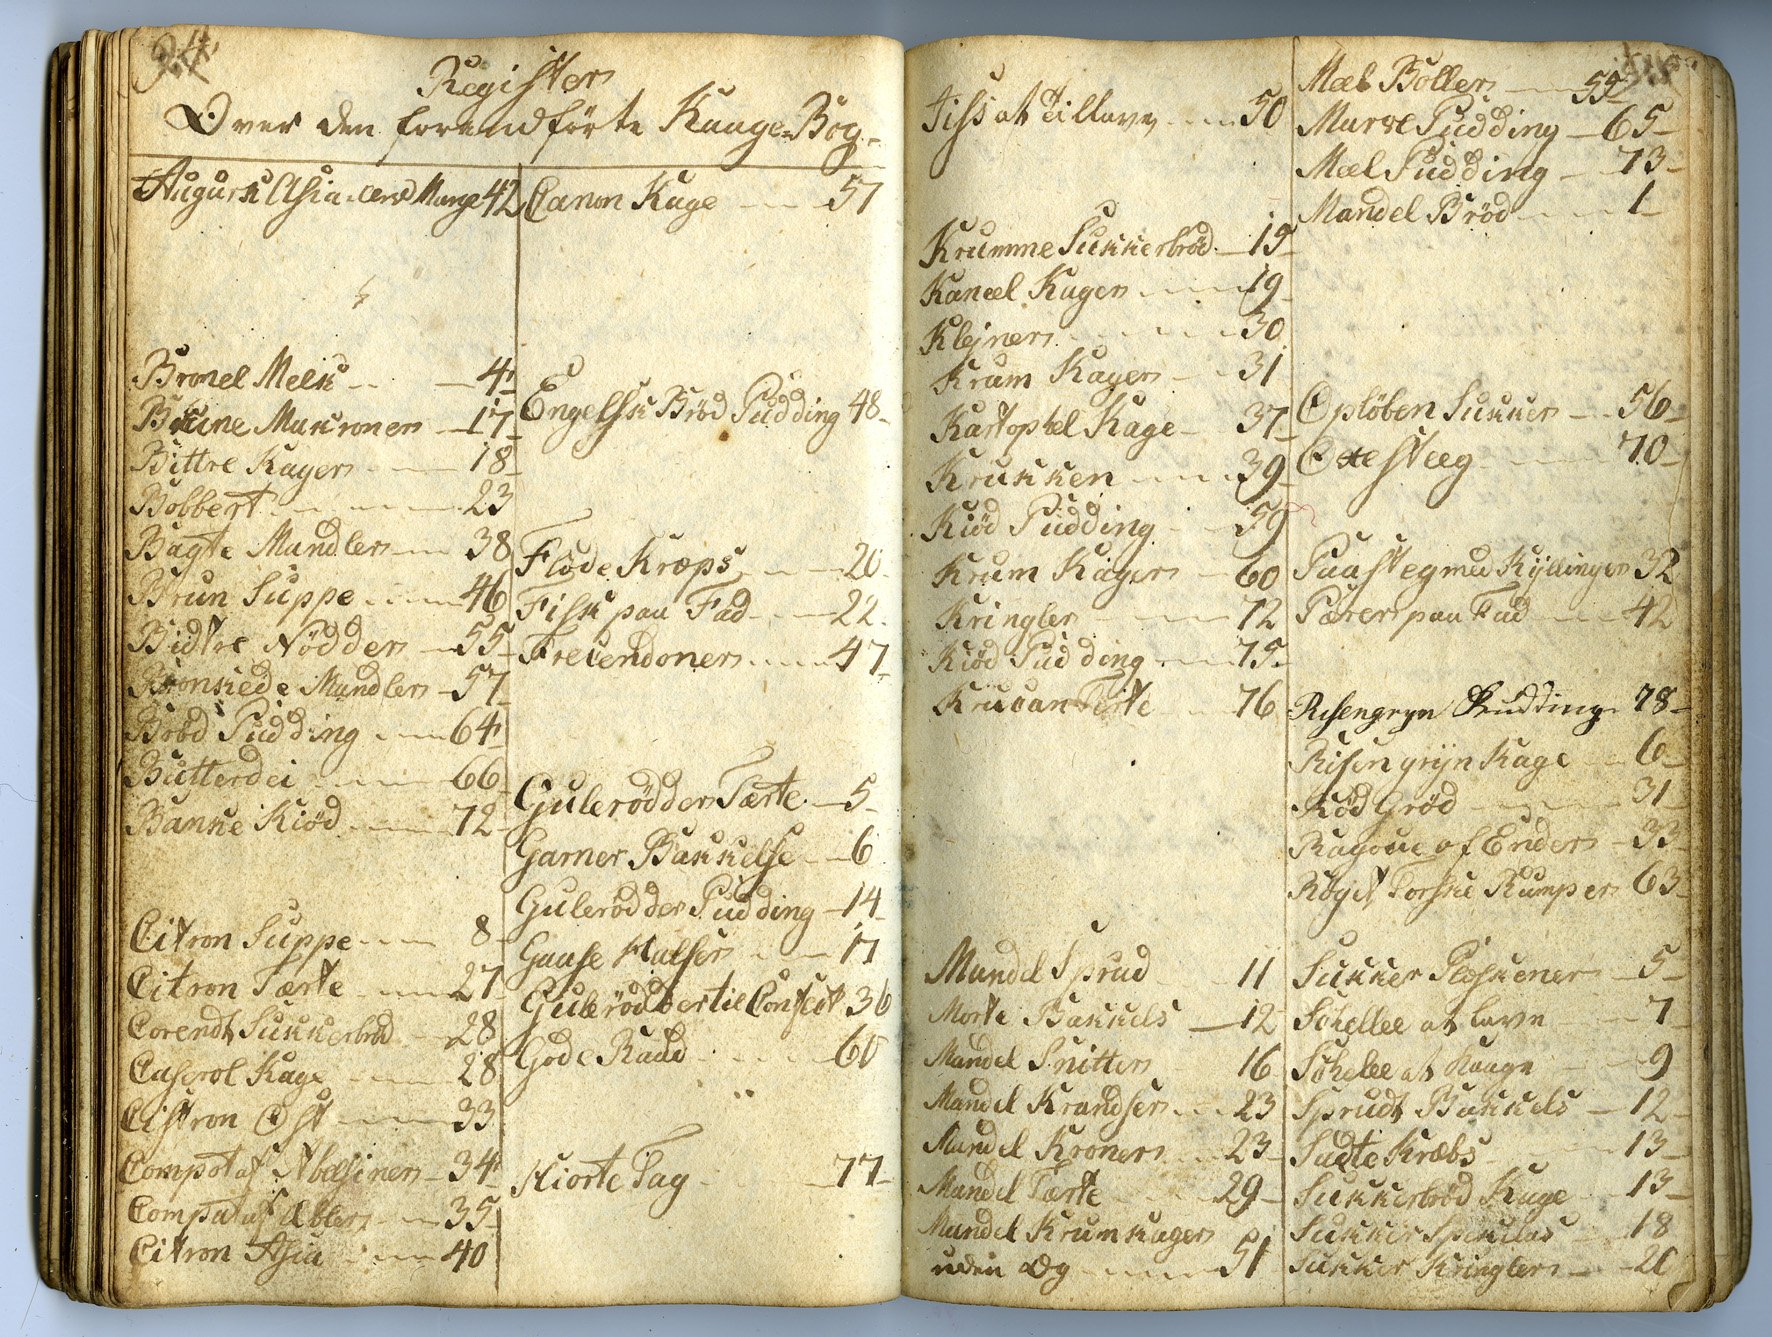 84
Register
Over den foranførte Kaage-Bog.
Augurk Asia eller Mange 42
Bronel Melk 4
Brune Makroner 17
Bittre Kager 18
Bobbert 23
Bagte Mandler 38
Brun Suppe 46
Bidtre Nødder 55
Bronkede Mandler 57
Brød Pudding 64
Butterdei 66
Banke Kiød 72
Citron Suppe 8
Citron Tærte 27
Corendt Sukkerbrød 28
Caserol Kage 28
Cistron Ost 33
Compot af Abelsiner 34
Compot af Æbler 35
Citron Asia 40
Canon Kage 57
Engelsk Brød Pudding 48
Fløde Kræps 20
Fisk paa Fad 22
Frecendoner 47
Gulerødder Tærte 5
Garner Bakkelse 6
Gulerødder Pudding 14
Gaase Halser 17
Gulerødder til Confect 36
Gode Raad 60
Hiorte Tag 77
Fiss at tillave 50
Krumme Sukkerbrød 15
Kaneel Kager 19
Klejner 30
Krum Kager 31
Kartoptel Kage 37
Krukken 39
Kiød Pudding 59
Krum Kager 60
Kringler 72
Kiød Pudding 75
Krucan Terte 76
Mandel Sprud 11
Morte Bakkels 12
Mandel Snitter 16
Mandel Krandser 23
Mandel Kroner 23
Mandel Tærte 29
Mandel Krumkager
uden Æg 51
Mæl Boller 55
Marve Pudding 65
Mæl Pudding 73
Mandel Brød 1
Opløben Sukker 56
Oxesteeg 70
Paasteg med Kyllinger 32
Pærer paa Fad 42
Risengryn Pudding 78
Risengryn Kage 6
Rød Grød 31
Ragoue af Ender 33
Røget Torske Rumper 63
Sukker Pløskener 5
Schellee at lave 7
Schelee at Kaage 9
Sprudt Bakkels 12
Sudte Kræbs 13
Sukkerbrød Kage 13
Sukker Spekulas 18
Sukker Kringler 20